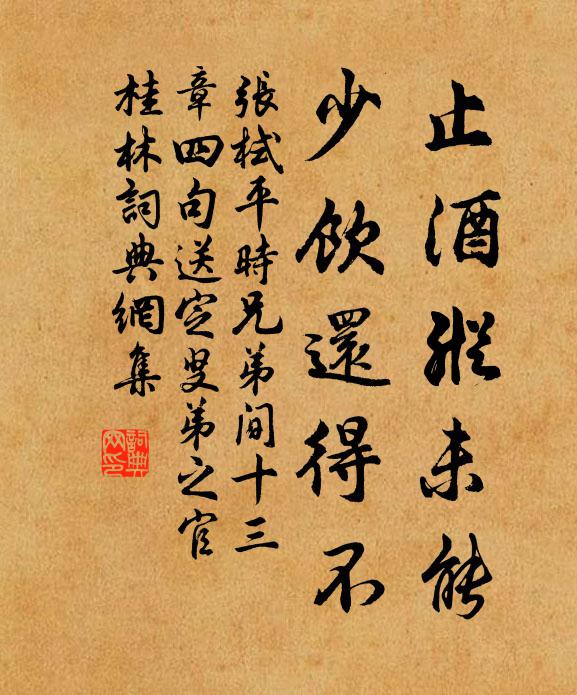 止酒縱未能
少飲還得不
張栻平時兄弟間十三
章四句送定叟弟之官
桂林詞典網集
詞典
网印